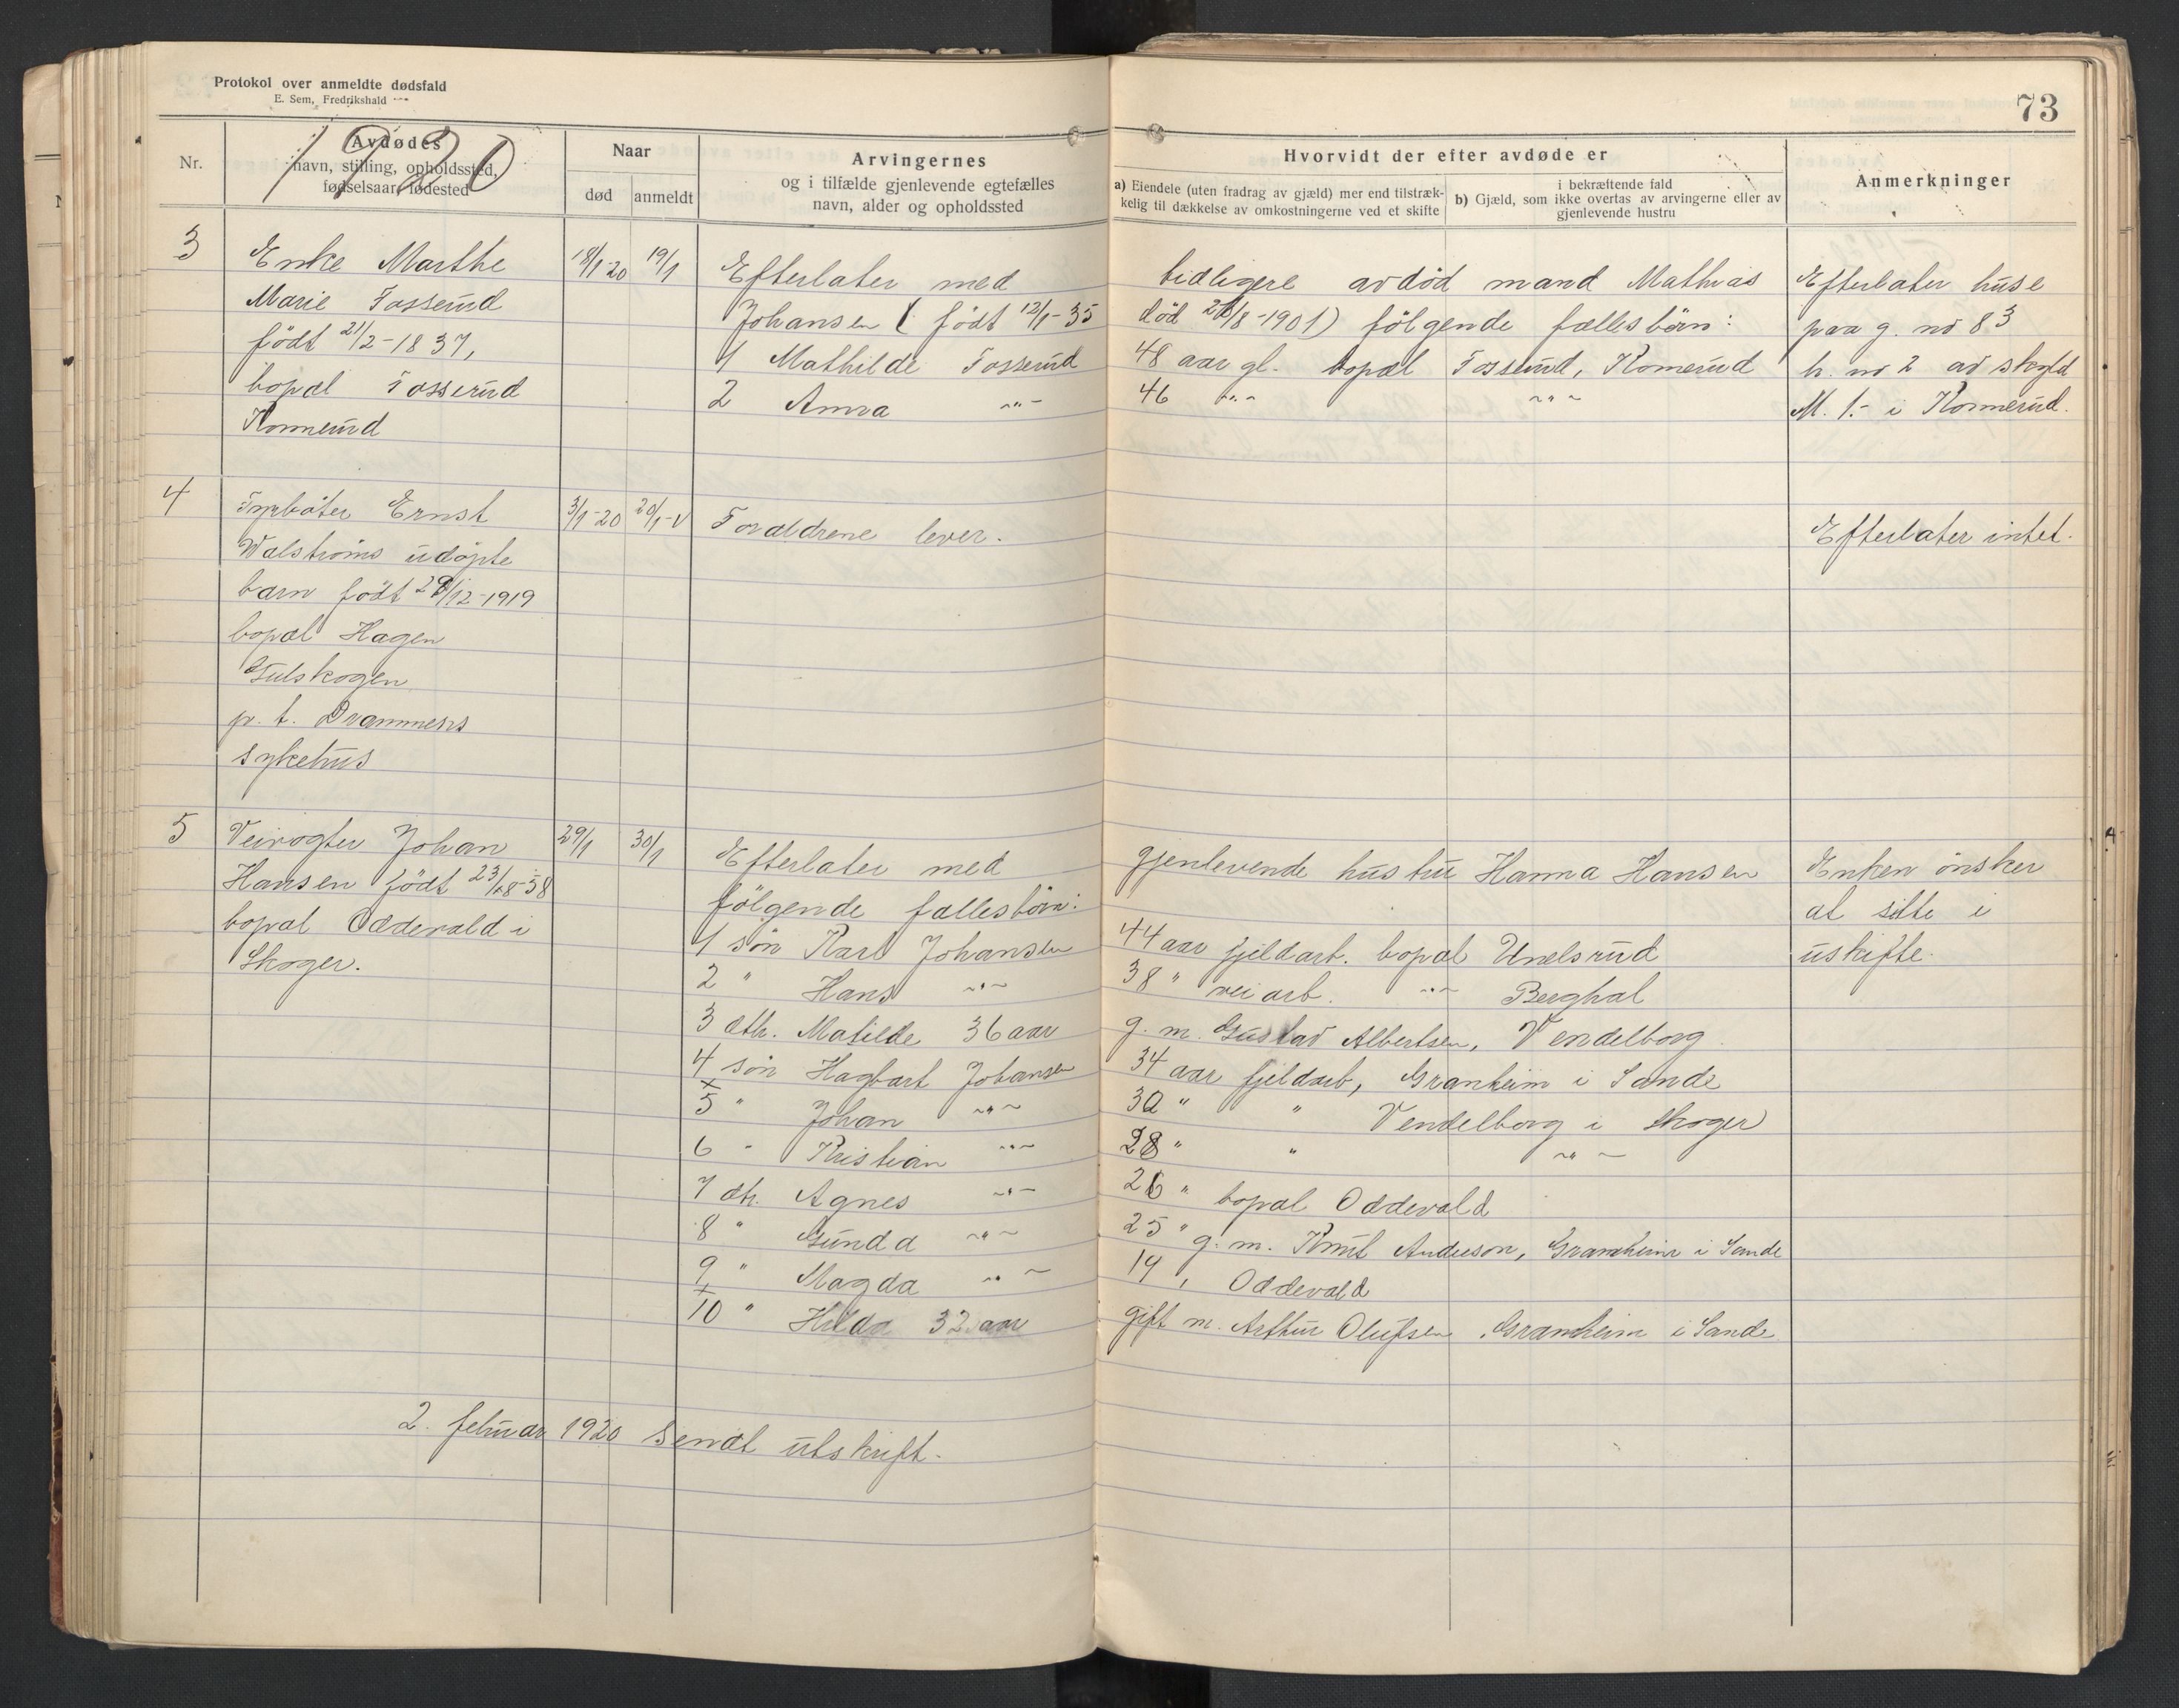 Protokol over anmeldte dødsfald
E. Sem, Fredrikshald
73
1920
Nr.
Avdødes
navn, stilling, opholdssted,
fødselsaar, fødested
Naar
død
anmeldt
Arvingernes
og i tilfælde gjenlevende egtefælles
navn, alder og opholdssted
Hvorvidt der efter avdøde er
a) Eiendele (uten fradrag av gjæld) mer end tilstræk-
kelig til dækkelse av omkostningerne ved et skifte
i bekræftende fald
b) Gjæld, som ikke overtas av arvingerne eller av
gjenlevende hustru
Anmerkninger
3
Enke Marthe
Marie Fosserud
født 21/2-1837,
bopæl Fosserud
Konnerud
18/1-20 19/1
Efterlater med tidligere avdød mand Mathias
Johansen (født 12/1-35 død /8-1901) følgende fællesbörn:
1 Mathilde Fosserud 48 aar gl. bopæl Fosserud, Konnerud
2 Anna -"- 46 -"- -"-
Efterlater huse
paa g. no 83
b. no 2 av skyld
M. 1.- i Konnerud.
4
Fyrböter Ernst
Walströms udöpte
barn født 29/12-1919
bopæl Hagen
Gulskogen
p.t. Drammens
sykehus
3/1-20 20/1-
Foraldrene lever.
Efterlater intet.
5
Veivogter Johan
Hansen født 23/8-58
bopæl Oddevald i
Skoger.
29/1 30/1
Efterlater med gjenlevende hustru Hanna Hansen
følgende fællesbörn:
1 sön Karl Johansen 44 aar fjeldarb. bopæl Unelsrud
2 " Hans -"- 38 " veiarb. -"- Berghal
3 dtr. Matilde 36 aar g. m. Gustav Albertsen, Vendelborg
4 sön Hagbart Johansen 34 aar fjeldarb, Granheim i Sande
x
5 " Johan -"- 30 " " Vendelborg i Skoger
6 " Kristian -"- 28 " " -"-
7 dtr. Agnes -"- 26 " bopæl Oddevald
8 " Gunda -"- 25 " g. m. Knut Anderson, Granheim i Sande
9 " Magda -"- 19 " Oddevald
x
10 " Hilda 32 aar gift m. Arthur Olufsen, Granheim i Sande
Enken önsker
at sitte i
uskifte.
2. februar 1920 sendt utskrift.